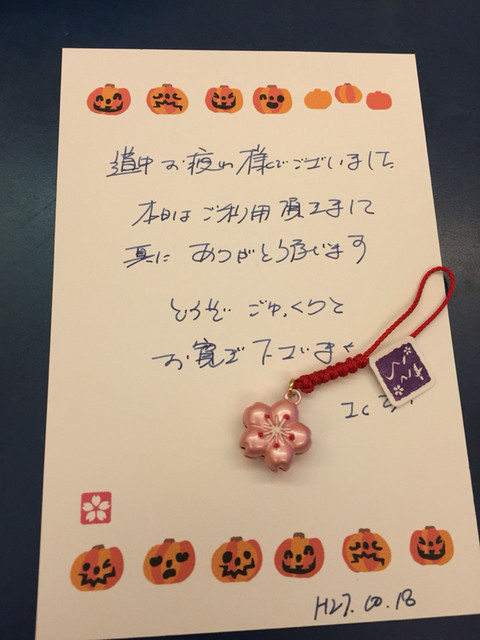 道中お疲れ様でございました
本日はご利用頂きまして
真に ありがとう存じます
どうぞ ごゆっくりと
お寛ぎ下さいませ
H27.10.18